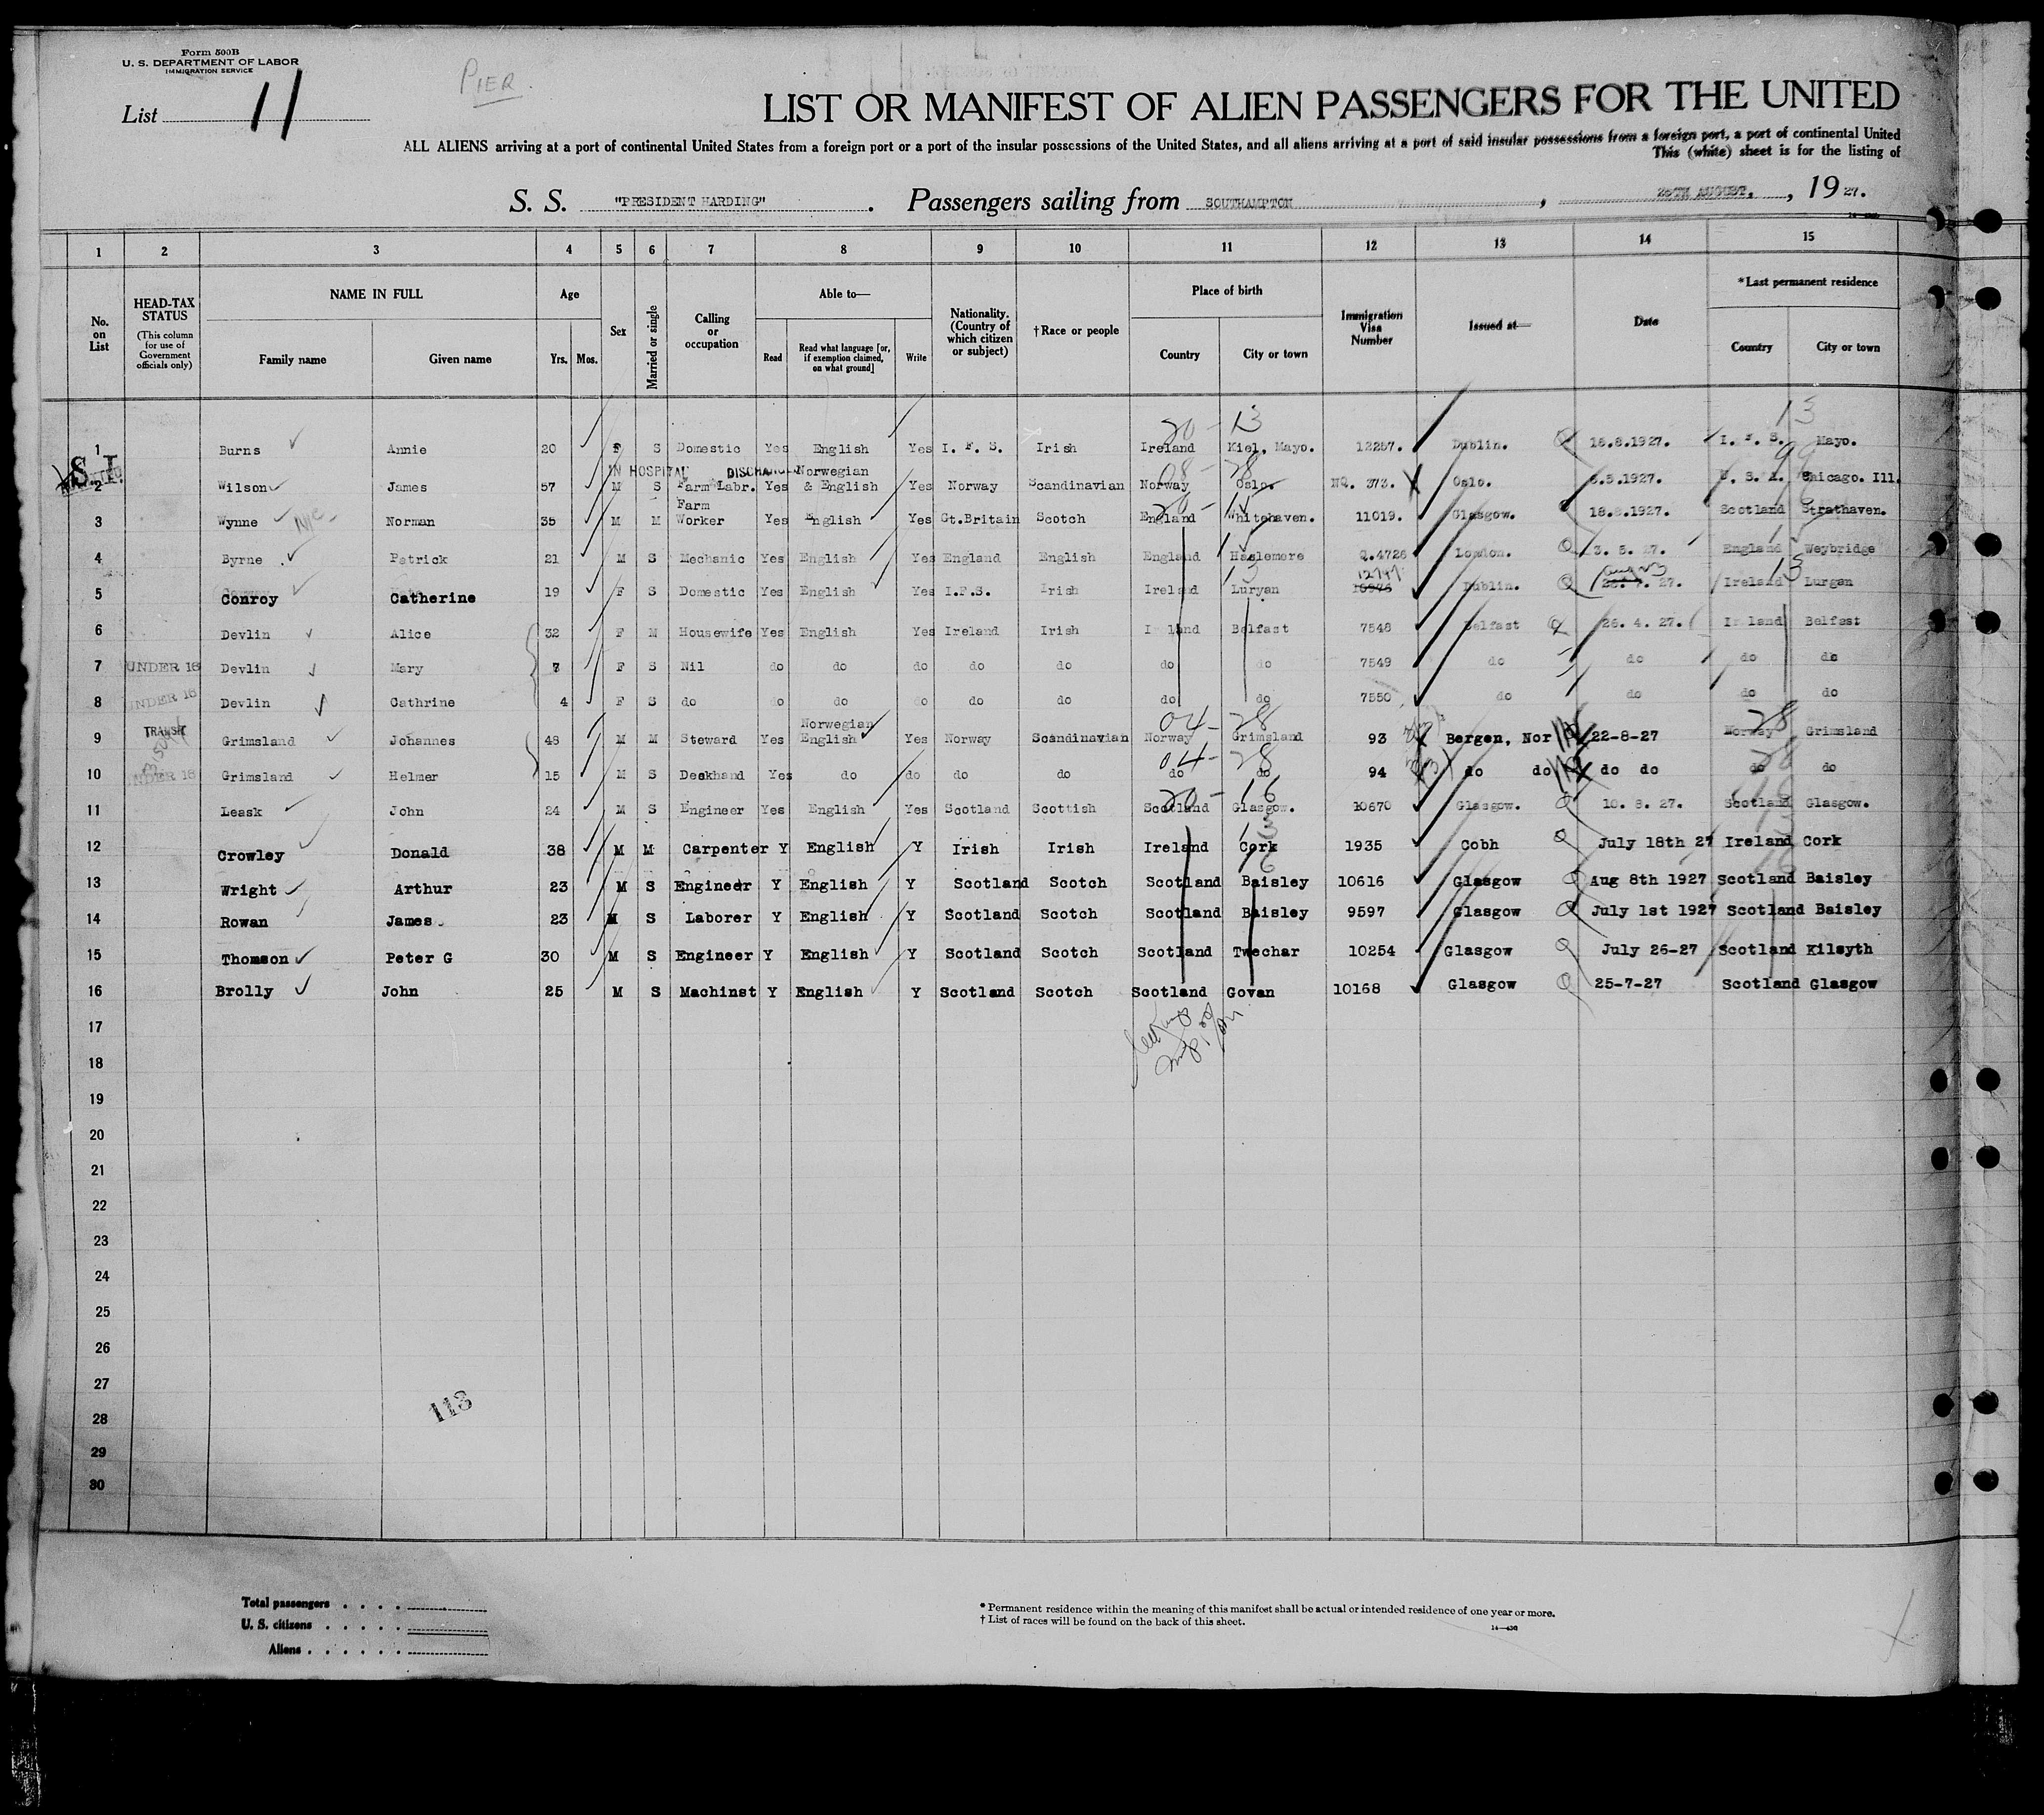 Form 500B
U. S. DEPARTMENT OF LABOR
IMMIGRATION SERVICE
PIER
List 11
LIST OR MANIFEST OF ALIEN PASSENGERS FOR THE UNITED
ALL ALIENS arriving at a port of continental United States from a foreign port or a port of the insular possessions of the United States, and all aliens arriving at a port of said insular possessions from a foreign port, a port of continental United
This (white) sheet is for the listing of
S. S. "PRESIDENT HARDING". Passengers sailing from SOUTHAMPTON, AUGUST, 1927.
1 2 3 4 5 6 7 8 9 10 11 12 13 14 15
No. on List
HEAD-TAX STATUS (This column for use of Government officials only)
NAME IN FULL
Family name Given name
Age
Yrs. Mos.
Sex
Married or single
Calling or occupation
Able to—
Read Read what language [or, if exemption claimed, on what ground] Write
Nationality. (Country of which citizen or subject)
†Race or people
Place of birth
Country City or town
Immigration Visa Number
Issued at—
Date
*Last permanent residence
Country City or town
20 - 13 13
1 Burns Annie 20 F S Domestic Yes English Yes I. F. S. Irish Ireland Kiel, Mayo. 12257. Dublin. 18.8.1927. I. F. S. Mayo.
S I IN HOSPITAL DISCHARGED 08 - 28 99
2 Wilson James 57 M S Farm Labr. Yes Norwegian & English Yes Norway Scandinavian Norway Oslo. NQ. 373. Oslo. .5.1927. U. S. A. Chicago. Ill.
3 Wynne Norman 35 M M Farm Worker Yes English Yes Gt.Britain Scotch England Whitehaven. 11019. Glasgow. 18.8.1927. Scotland Strathaven.
4 Byrne Patrick 21 M S Mechanic Yes English Yes England English England Haslemere Q.4726 London. 3. 5. 27. England Weybridge
12797 13 Aug 23 13
5 Conroy Catherine 19 F S Domestic Yes English Yes I.F.S. Irish Ireland Luryan 10976 Dublin. 27. Ireland Lurgan
6 Devlin Alice 32 F M Housewife Yes English Yes Ireland Irish Ireland Belfast 7548 Belfast 26. 4. 27. Ireland Belfast
7 UNDER 16 Devlin Mary 7 F S Nil do do do do do do do 7549 do do do do
8 UNDER 16 Devlin Cathrine 4 F S do do do do do do do do 7550 do do do do
TRANSIT 04 - 28 28
9 Grimsland Johannes 48 M M Steward Yes Norwegian English Yes Norway Scandinavian Norway Grimsland 93 Bergen, Nor 22-8-27 Norway Grimsland
04 - 28 28
10 UNDER 16 Grimsland Helmer 15 M S Deckhand Yes do do do do do do 94 do do do do do do
20 - 16
11 Leask John 24 M S Engineer Yes English Yes Scotland Scottish Scotland Glasgow. 10670 Glasgow. 10. 8. 27. Scotland Glasgow.
12 Crowley Donald 38 M M Carpenter Y English Y Irish Irish Ireland Cork 1935 Cobh July 18th 27 Ireland Cork
13 Wright Arthur 23 M S Engineer Y English Y Scotland Scotch Scotland Baisley 10616 Glasgow Aug 8th 1927 Scotland Baisley
14 Rowan James. 23 M S Laborer Y English Y Scotland Scotch Scotland Baisley 9597 Glasgow July 1st 1927 Scotland Baisley
15 Thomson Peter G 30 M S Engineer Y English Y Scotland Scotch Scotland Twechar 10254 Glasgow July 26-27 Scotland Kilsyth
16 Brolly John 25 M S Machinst Y English Y Scotland Scotch Scotland Govan 10168 Glasgow 25-7-27 Scotland Glasgow
17
18
19
20
21
22
23
24
25
26
27
28
29
30
113
Total passengers
U. S. citizens
Aliens
* Permanent residence within the meaning of this manifest shall be actual or intended residence of one year or more.
† List of races will be found on the back of this sheet.
14—430